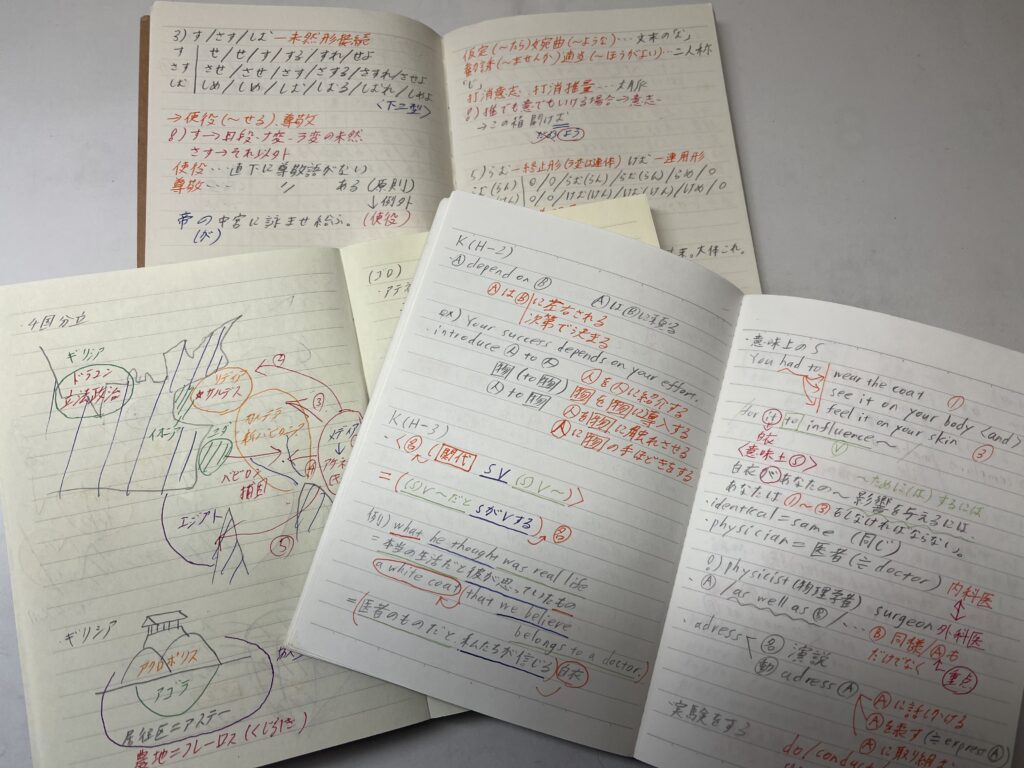 3) す/さす/しむ－未然形接続
す｜せ/せ/す/する/すれ/せよ
さす｜させ/させ/さす/さする/さすれ/させよ
しむ｜しめ/しめ/しむ/しむる/しむれ/しめよ
〈下二型〉
→使役(～せる)、尊敬
す→四段・ナ変・ラ変の未然
さす→それ以外
使役…直下に尊敬語がない
尊敬… 〃 ある(原則)
↓例外
帝の中宮に詠ませ給ふ。(使役)
(が)
仮定(～たら)婉曲(～ような)…文末の
勧誘(～ませんか)適当(～ほうがよい)…二人称
打消意志、打消推量
誰でも意でもいける場合→意志
→この
5) らむ－終止形(ラ変は連体) けむ－連用形
らむ(らん)｜0/0/らむ(らん)/らむ(らん)/らめ/0
けむ(けん)｜0/0/けむ(けん)/けむ(けん)/けめ/0
大体これ。
・4国分立
ギリシア
ドラコン
立法政治
リディア
サルデス
イオニア
カルデラ
新バビロニア
メディア
②
③
④
⑤
バビロン
捕囚
エジプト
ギリシア
アクロポリス
アゴラ
居住区＝アステー
農地＝フレーロス(くじうけ)
K(H-2)
・Ⓐ depend on Ⓑ
ⒶはⒷに左右される
次第で決まる
ⒶはⒷに頼る
ex) Your success depends on your effort.
・introduce Ⓐ to Ⓐ
物(to物)
人 to 物
人を人に紹介する
物を物に導入する
人を物に触れさせる
人に物の手ほどきをする
K(H-3)
〈名 関代 SV (S)V～〉
=((S)V～だとSがVする)名
例) what he thought was real life
=本当の生活だと彼が思っていたもの
a white coat that we believe
belongs to a doctor.
=(医者のものだと私たちが信じる)白衣
・意味上のS
You had to wear the coat ①
see it on your body <and>
feel it on your skin ③
for it to influence～
白衣
〈意味上Ⓢ〉
～ために(は)するには
白衣があなたの～影響を与えるには、
あなたは①～③をしなければならない。
・identical = same (同じ)
・physician = 医者(≒doctor) 内科医
physicist(物理学者) surgeon 外科医
・Ⓐ/as well as Ⓑ/… Ⓑ同様Ⓐも
だけでなく 重点
・adress 名 演説
動 adress Ⓐ
Ⓐに話しかける
Ⓐを表す(≒express Ⓐ)
Ⓐに取り組む
実験をする
do/conduct